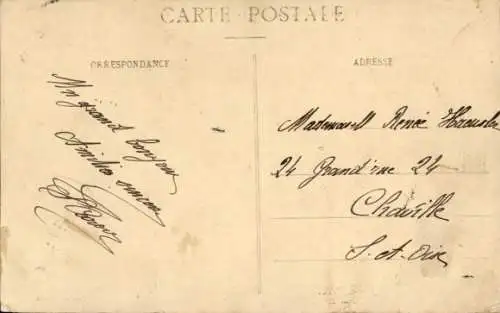 CARTE POSTALE
CORRESPONDANCE
Un grand bonjour
Amitiés
ADRESSE
Mademosell Renée
24 Grand'rue 24
Chaville
S.-et-Oise